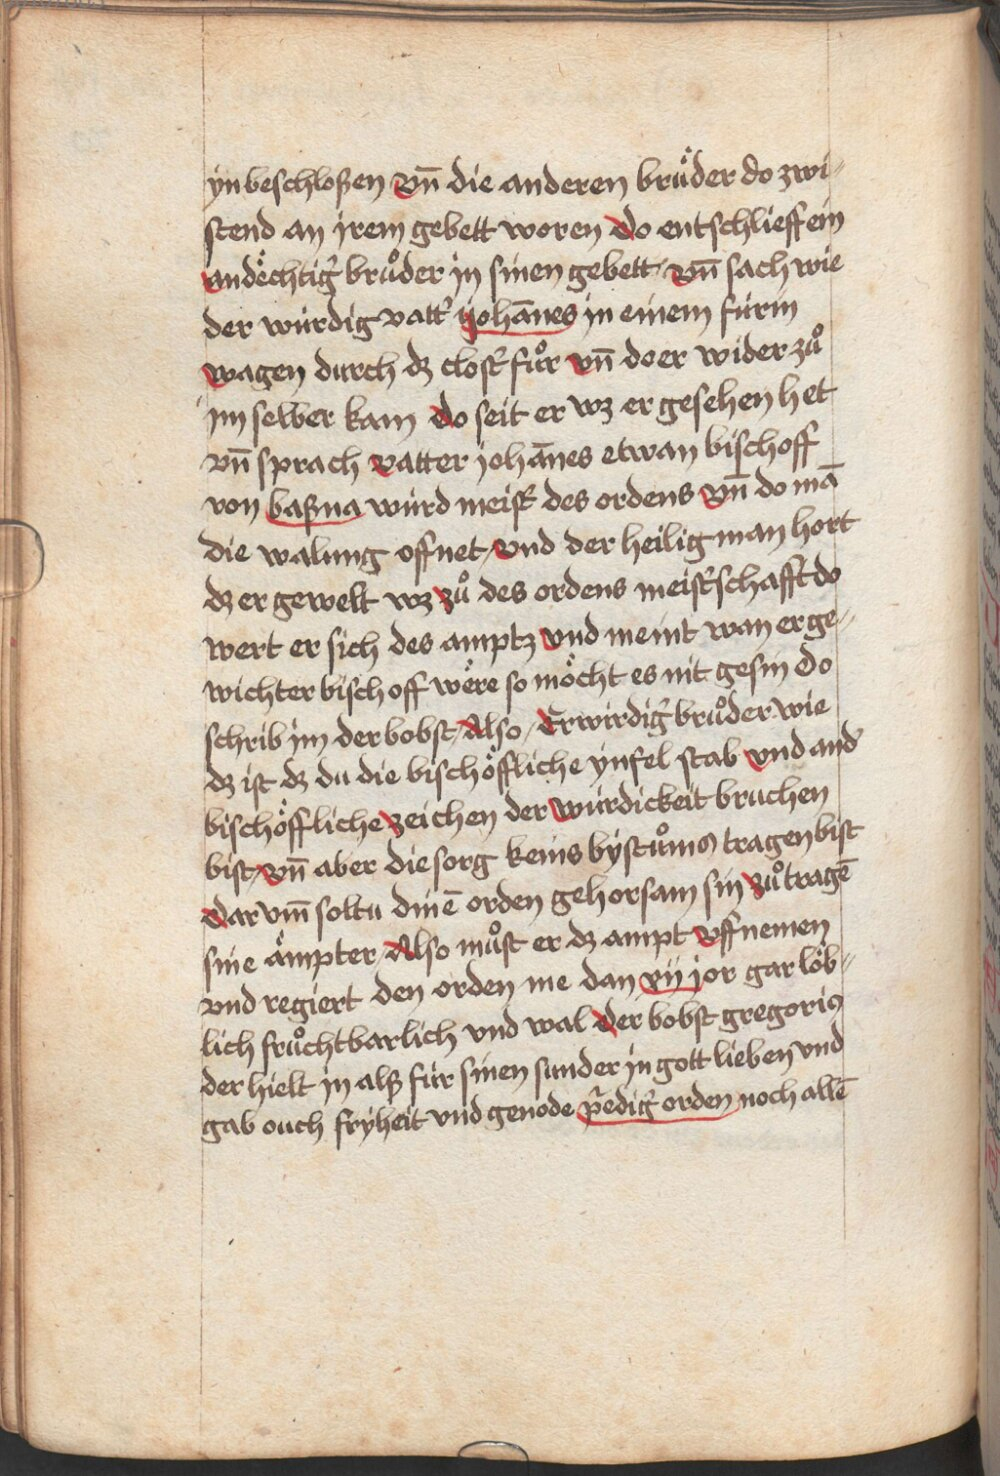 ynbeschloßen vn̄ die anderen bruͤder do zwi-
stend an jrem gebett woren do entschlieff ein
andechtigʼ bruͦder in sinen gebett / vn̄ sach wie
der würdig vattʼ johānes in einem fürin
wagen durch dz clostʼ fuͦr vn̄ do er wider zuͦ
im selber kam do seit er wz er gesehen het
vn̄ sprach vatter johānes etwan bischoff
von baßna würd meistʼ des ordens vn̄ do mā
die walung offnet / vnd der heilig man hort
dz er gewelt wz zuͦ des ordens meistʼschafft do
wert er sich des amptz vnd meint wan er ge-
wichter bischoff were so möcht es nit gesin do
schrib im der bobst / Also / Erwirdigʼ bruͦder wie
dz ist dz du die bischöffliche ynfel stab vnd andʼ
bischöffliche zeichen der würdickeit bruchen
bist / vn̄ aber die sorg keins bystuͦms tragen bist
dar vm̄ soltu dinē orden gehorsam sin zuͦ tragē
sine ämpter / Also muͦst er dz ampt vff nemen
vnd regiert den orden me dan xij jor gar löb-
lich fruͦchtbarlich vnd wal der bobst gregorius
der hielt in alß für sinen sunder in gott lieben vnd
gab ouch fryheit vnd genode p̄edigʼ orden noch allē